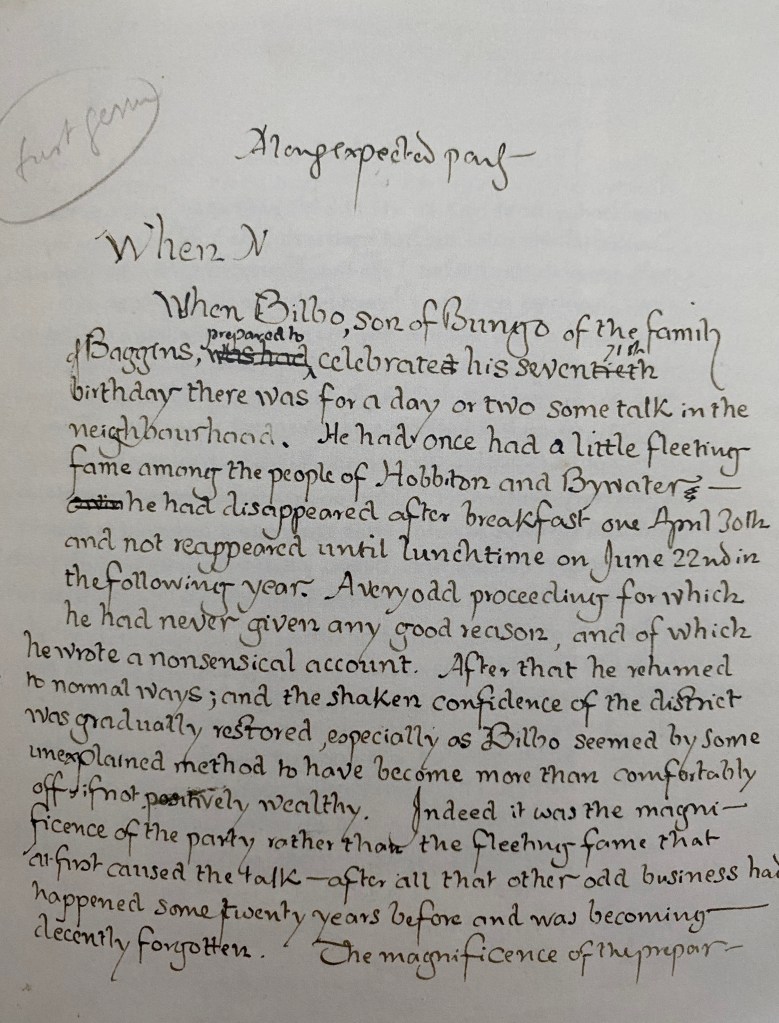 first germ
A long expected party
When N
When Bilbo, son of Bungo of the family
prepared to
of Baggins, was had, celebrated his seventieth
71st
birthday there was for a day or two some talk in the
neighbourhood. He had once had a little fleeting
fame among the people of Hobbiton and Bywater —
he had disappeared after breakfast one April 30th
and not reappeared until lunchtime on June 22nd in
the following year. A very odd proceeding for which
he had never given any good reason, and of which
he wrote a nonsensical account. After that he returned
to normal ways; and the shaken confidence of the district
was gradually restored, especially as Bilbo seemed by some
unexplained method to have become more than comfortably
off, if not positively wealthy. Indeed it was the magni-
ficence of the party rather than the fleeting fame that
at first caused the talk — after all that other odd business had
happened some twenty years before and was becoming
decently forgotten. The magnificence of the prepar-